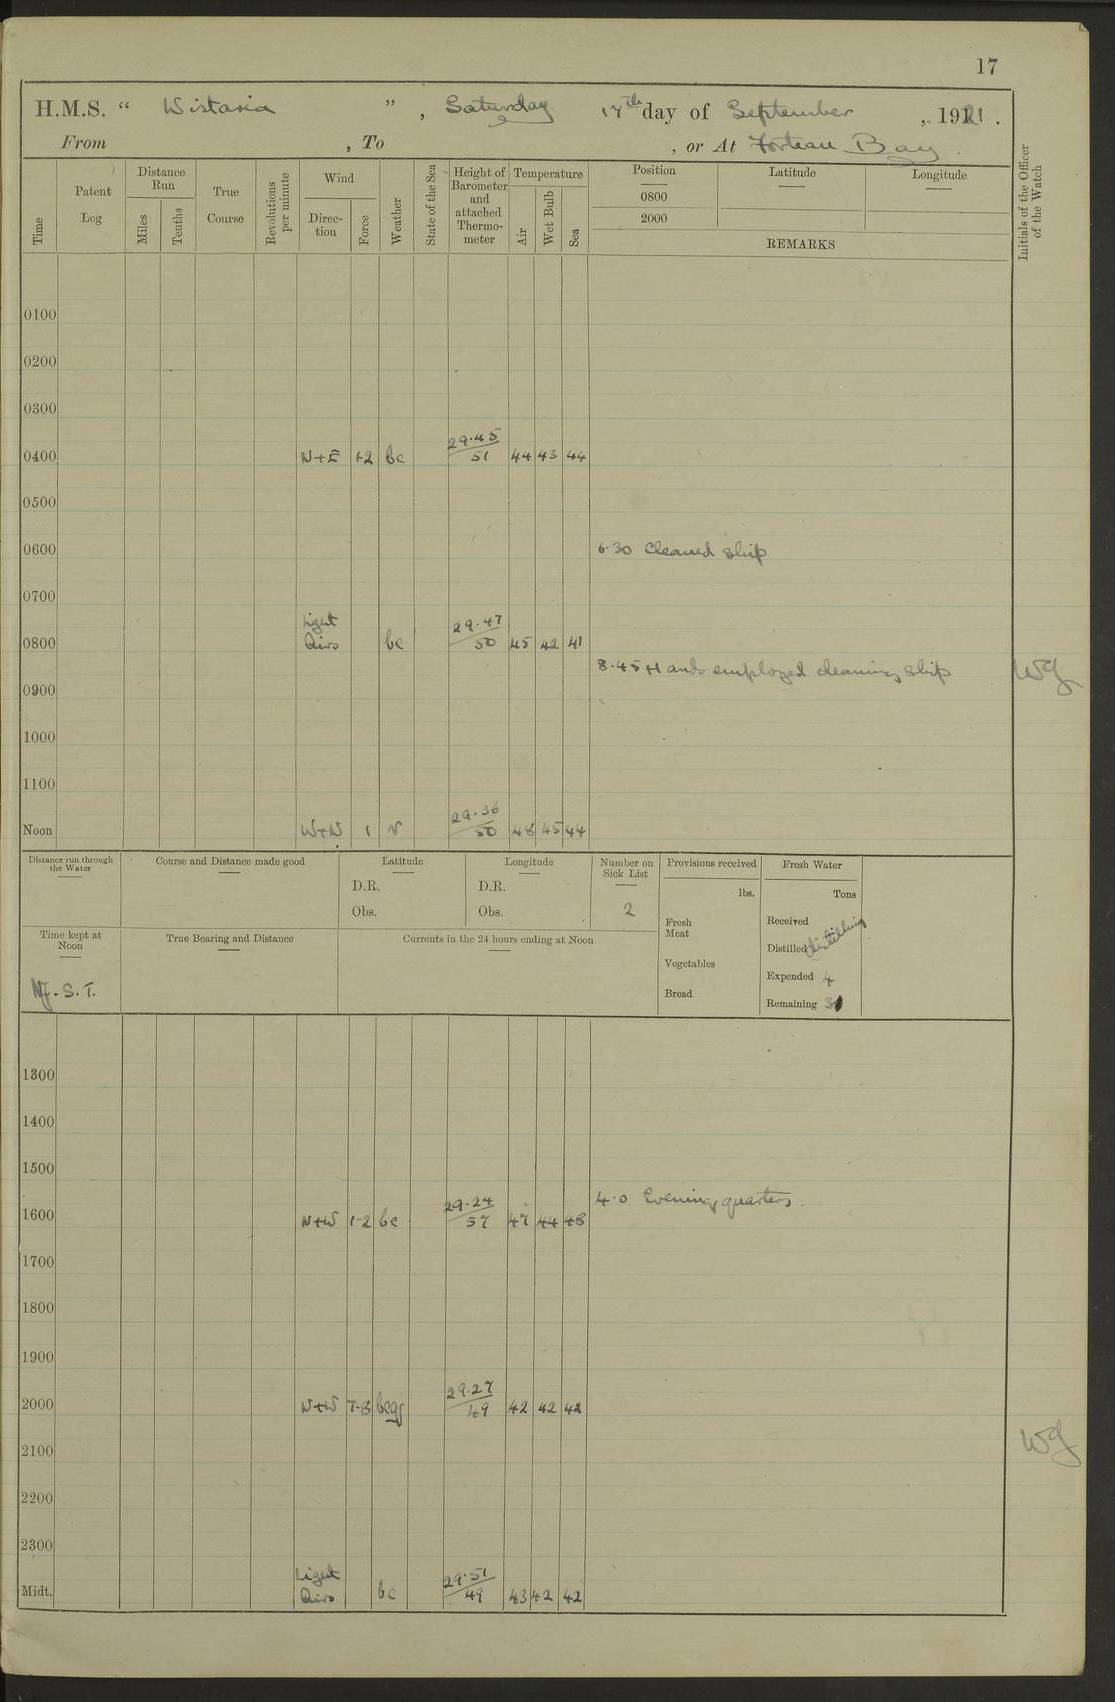 17
H.M.S. “ Wistaria ”, Saturday 17th day of September, 1921.
From , To , or At Forteau Bay.
Time
Patent Log
Distance Run
Miles
Tenths
True Course
Revolutions per minute
Wind
Direction
Force
Weather
State of the Sea
Height of Barometer and attached Thermometer
Temperature
Air
Wet Bulb
Sea
Position
0800
2000
Latitude
Longitude
REMARKS
Initials of the Officer of the Watch
0100
0200
0300
0400 N+E 1-2 bc 29.45/51 44 43 44
0500
0600 6.30 Cleaned ship
0700
0800 Light Airs bc 29.47/50 45 42 41
8.45 Hands employed cleaning ship WG
0900
1000
1100
Noon W+W 1 r 29.36/50 48 45 44
Distance run through the Water
Course and Distance made good
Latitude
D.R.
Obs.
Longitude
D.R.
Obs.
Number on Sick List
2
Provisions received
lbs.
Fresh Meat
Vegetables
Bread
Fresh Water
Tons
Received
Distilled distilling
Expended 4
Remaining
Time kept at Noon
Nf. S. T.
True Bearing and Distance
Currents in the 24 hours ending at Noon
1300
1400
1500
4.0 Evening quarters.
1600 N+W 1-2 bc 29.24/57 47 44 48
1700
1800
1900
2000 N+W 7-8 bcqr 29.27/49 42 42 42
WG
2100
2200
2300
Midt. Light Airs bc 29.51/49 43 42 42